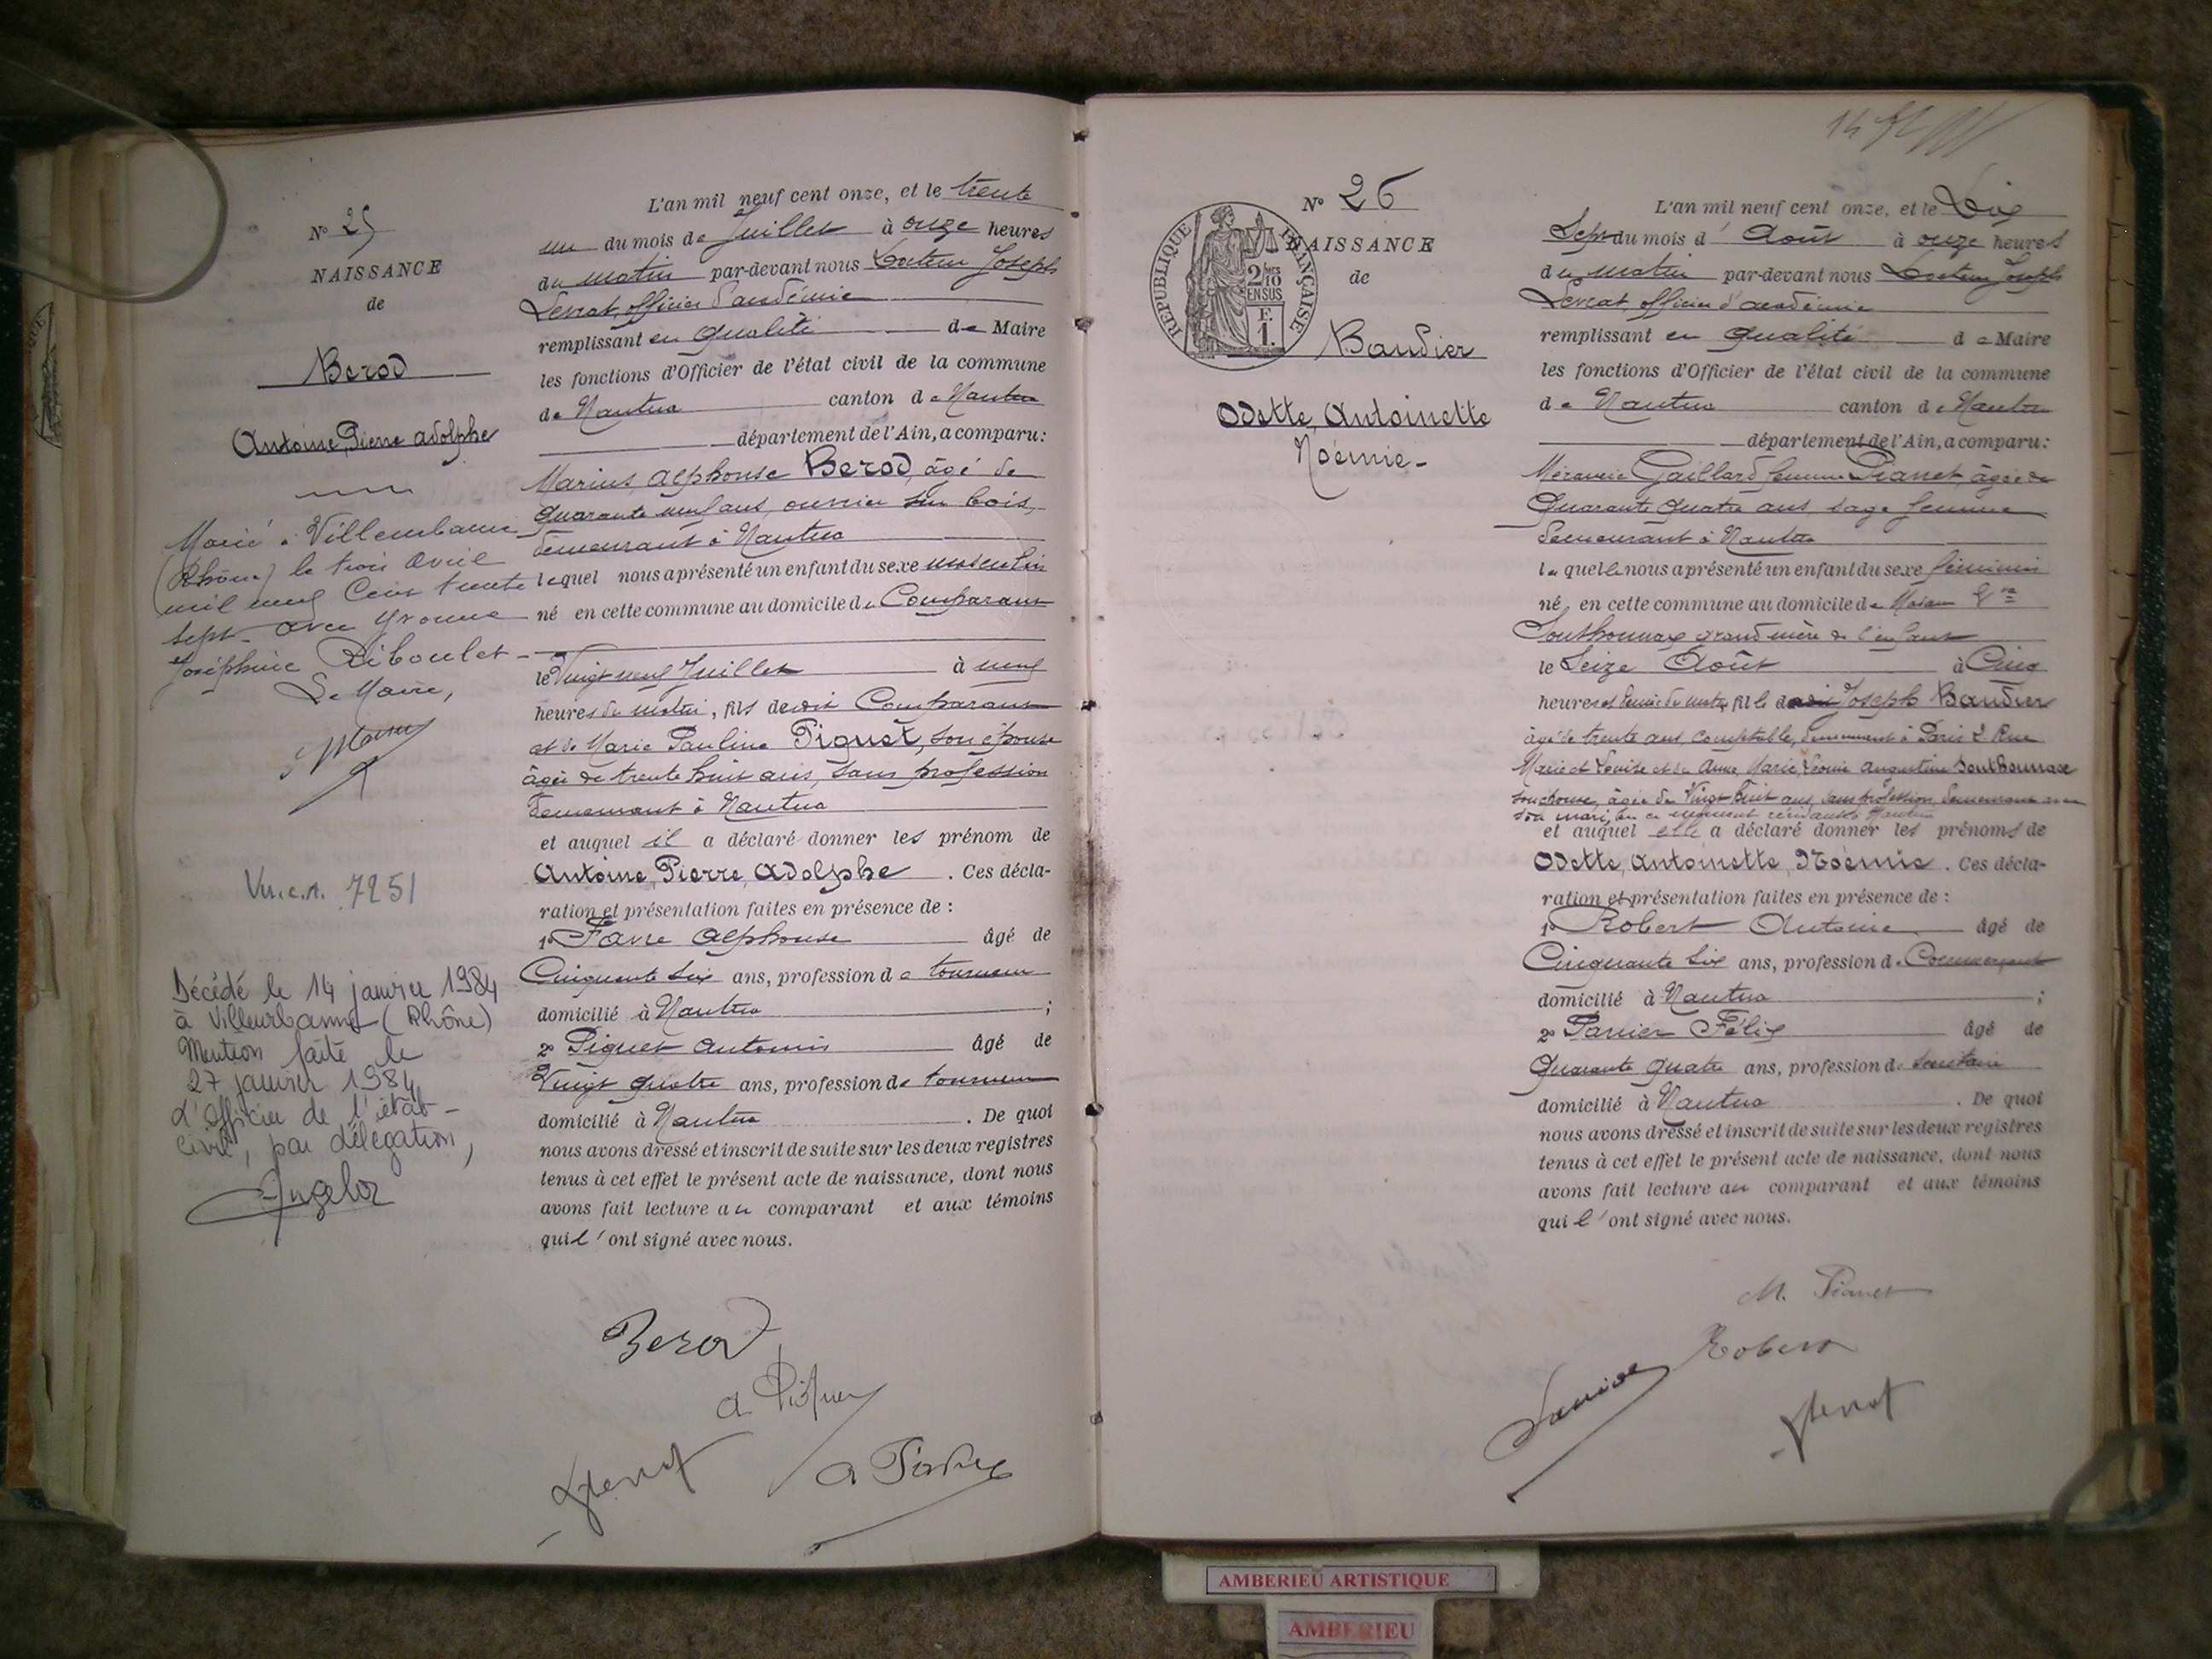 N° 25
NAISSANCE
de
Berod
Antoine, Pierre Adolphe
Marié à Villeurbanne
(Rhône) le trois Avril
mil neuf cent trente
sept avec Yvonne
Joséphine Riboulet
Le Maire,
Vu.c.A. 7251
Décédé le 14 janvier 1984
à Villeurbanne (Rhône)
Mention faite le
27 janvier 1984
L'officier de l'état-
civil, par délégation,
L'an mil neuf cent onze, et le trente
un du mois de Juillet à onze heures
du matin par-devant nous Docteur Joseph
Levrat, officier d'académie
remplissant en qualité de Maire
les fonctions d'Officier de l'état civil de la commune
de Nantua canton de Nantua
département de l'Ain, a comparu:
Marius Alphonse Berod, âgé de
quarante neuf ans, ouvrier sur bois,
demeurant à Nantua
lequel nous a présenté un enfant du sexe masculin
né en cette commune au domicile du Comparant
le Vingt neuf Juillet à neuf
heures du matin, fils dudit Comparant
et de Marie Pauline Piquet, son épouse
âgée de trente huit ans, sans profession
demeurant à Nantua
et auquel il a déclaré donner les prénom de
Antoine, Pierre, Adolphe. Ces décla-
ration et présentation faites en présence de :
1° Favre Alphonse âgé de
Cinquante six ans, profession de tourneur
domicilié à Nantua ;
2° Piquet Antonin âgé de
Vingt quatre ans, profession de tourneur
domicilié à Nantua. De quoi
nous avons dressé et inscrit de suite sur les deux registres
tenus à cet effet le présent acte de naissance, dont nous
avons fait lecture au comparant et aux témoins
qui l'ont signé avec nous.
Berod
A Piquet
A Favre
N° 26
NAISSANCE
de
RÉPUBLIQUE FRANÇAISE
2/10 MES
EN SUS
F.
1.
Baudier
Odette, Antoinette
Noémie-
L'an mil neuf cent onze, et le Dix
Sept du mois d'Août à onze heures
du matin par-devant nous Docteur Joseph
Levrat, officier d'académie
remplissant en qualité de Maire
les fonctions d'Officier de l'état civil de la commune
de Nantua canton de Nantua
département de l'Ain, a comparu:
Gaillard femme Pianet, âgée de
Quarante quatre ans, sage femme
demeurant à Nantua
laquelle nous a présenté un enfant du sexe féminin
né en cette commune au domicile de Madame Vve
Southonnax grand'mère de l'enfant
le Seize Août à Cinq
heures et demie du matin, fille de Joseph Baudier
âgé de trente ans, comptable, demeurant à Paris 2 Rue
Marie et Louise et de Anne Marie Léonie Augustine Southonnax
son épouse, âgée de Vingt huit ans, sans profession, demeurant avec
son mari, en ce moment résidant à Nantua
et auquel elle a déclaré donner les prénoms de
Odette, Antoinette, Noémie. Ces décla-
ration et présentation faites en présence de :
1° Robert Antoine âgé de
Cinquante six ans, profession de Commerçant
domicilié à Nantua ;
2° Félix âgé de
Quarante quatre ans, profession de secrétaire
domicilié à Nantua. De quoi
nous avons dressé et inscrit de suite sur les deux registres
tenus à cet effet le présent acte de naissance, dont nous
avons fait lecture au comparant et aux témoins
qui l'ont signé avec nous.
M. Pianet
Robert
AMBERIEU ARTISTIQUE
AMBERIEU